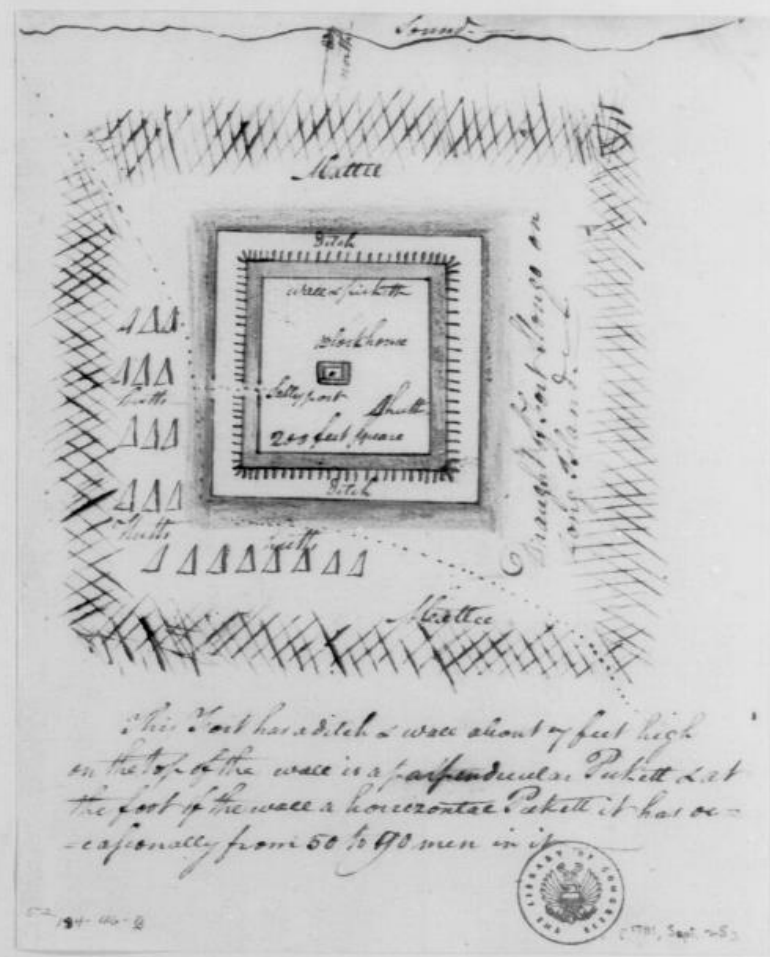 Sound
north
Mattee
Ditch
wall & pickett
Blockhouse
Sally port
Hutts
200 feet square
Hutts
Ditch
Hutts
Hutts
Mattee
Draught of Fort Slongo on
Long Island
This Fort has a ditch & wall about 7 feet high
on the top of the wall is a parpendicular Pickett & at
the foot of the wall a horizontal Pickett it has oc-
-casionally from 50 to 90 men in it
THE LIBRARY OF CONGRESS
[1781, Sept.